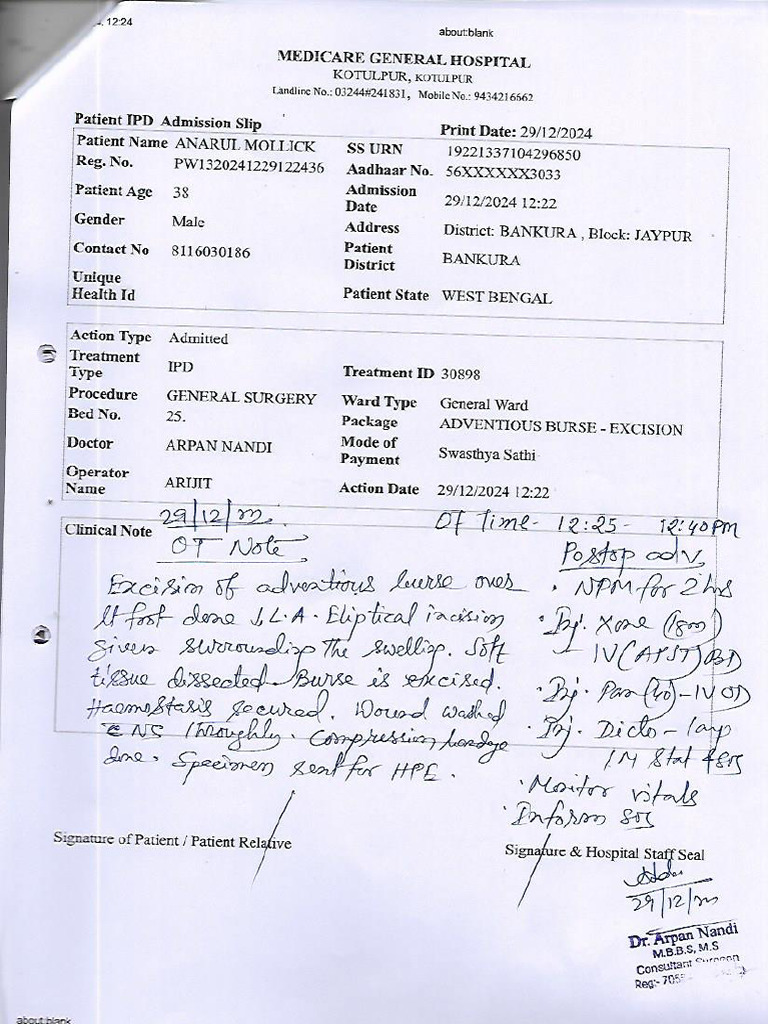 12:24
about:blank
MEDICARE GENERAL HOSPITAL
KOTULPUR, KOTULPUR
Landline No.: 03244#241831, Mobile No.: 9434216662
Patient IPD Admission Slip
Print Date: 29/12/2024
Patient Name ANARUL MOLLICK SS URN 19221337104296850
Reg. No. PW1320241229122436 Aadhaar No. 56XXXXXX3033
Patient Age 38 Admission Date 29/12/2024 12:22
Gender Male Address District: BANKURA , Block: JAYPUR
Contact No 8116030186 Patient District BANKURA
Unique Health Id Patient State WEST BENGAL
Action Type Admitted
Treatment Type IPD Treatment ID 30898
Procedure GENERAL SURGERY Ward Type General Ward
Bed No. 25. Package ADVENTIOUS BURSE - EXCISION
Doctor ARPAN NANDI Mode of Payment Swasthya Sathi
Operator Name ARIJIT Action Date 29/12/2024 12:22
Clinical Note 29/12/
OT Time - 12:25 - 12:40PM
OT Note
Excision of adventious burse over
lt foot done . L.A. Eliptical incision
given surrounding the swelling. Soft
tissue dissected. Burse is excised.
Haemostasis secured. Wound washed
c NS throughly. Compression bandage
done. Specimen sent for HPE.
Postop adv,
· NPM for 2 hrs
· Inj. Xone (1gm)
- IV (AFST) BD
· Inj. Pan (40) - IV OD
· Inj. Diclo - 1 amp
IM Stat & SOS
· Monitor vitals
· Inform SOS
Signature of Patient / Patient Relative
Signature & Hospital Staff Seal
29/12/
Dr. Arpan Nandi
M.B.B.S, M.S
Consultant Surgeon
Reg:- 705
about:blank